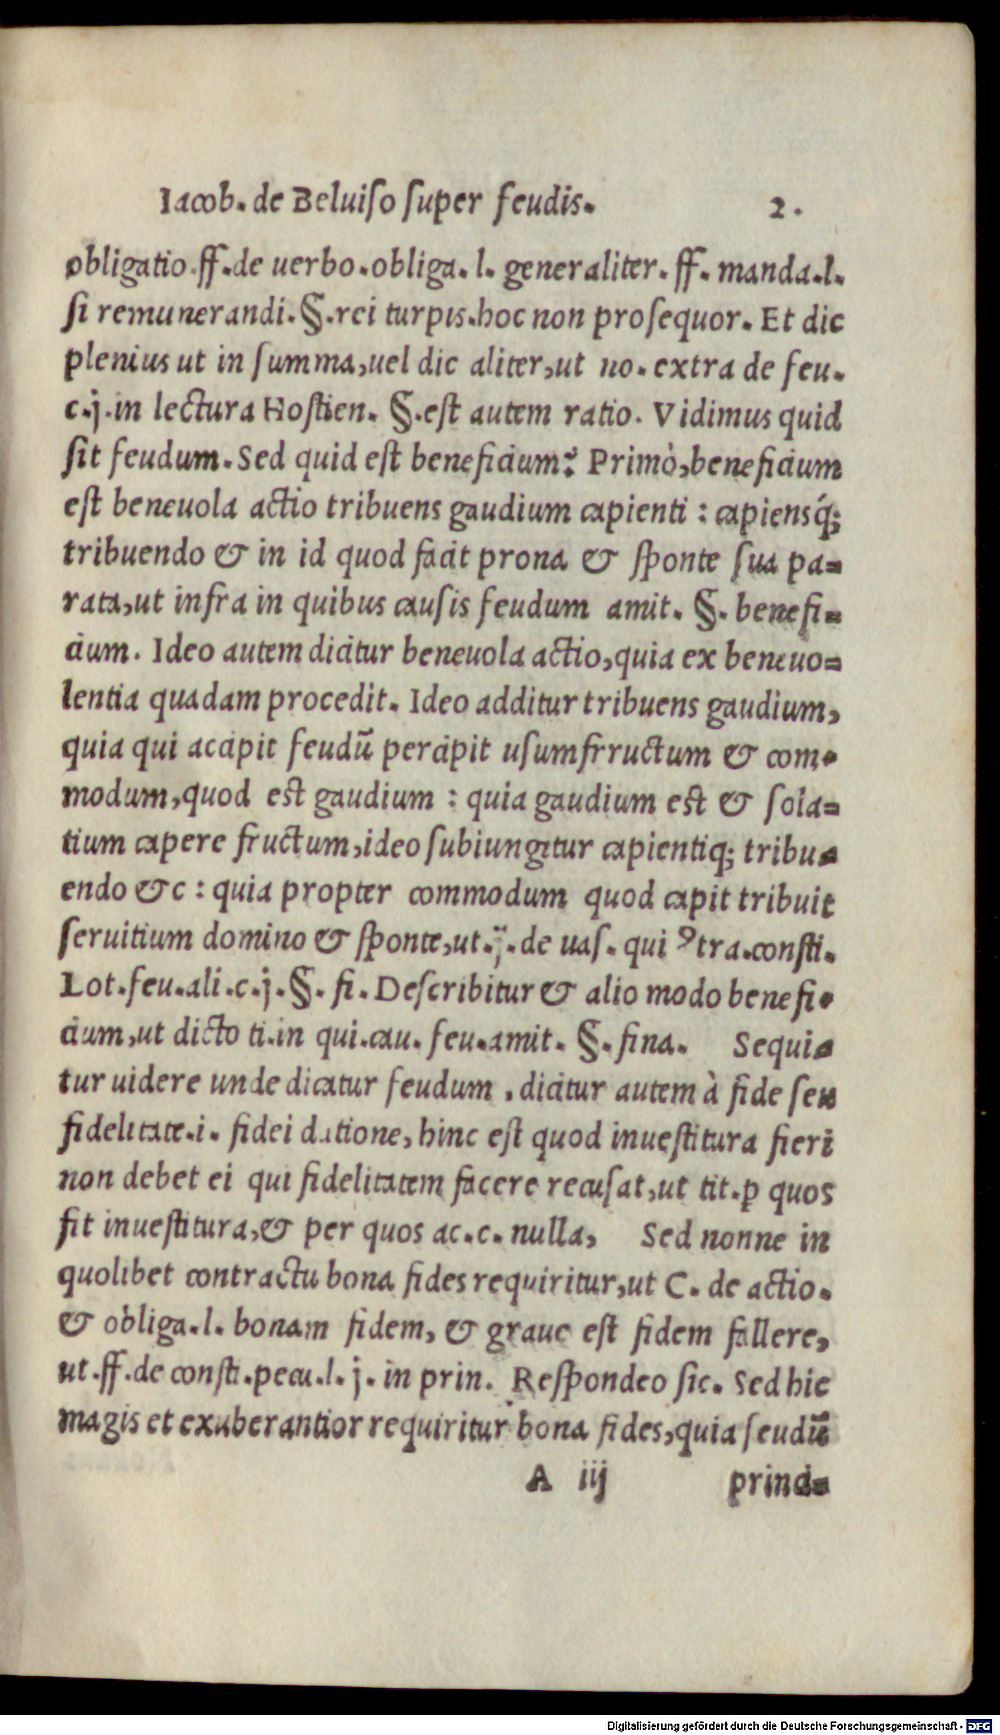 Iacob. de Beluiso super feudis. 2.
obligatio. ff. de uerbo. obliga. l. generaliter. ff. manda. l.
si remunerandi. §. rei turpis. hoc non prosequor. Et dic
plenius ut in summa, uel dic aliter, ut no. extra de feu.
c. j. in lectura Hostien. §. est autem ratio. Vidimus quid
sit feudum. Sed quid est beneficium? Primò, beneficium
est beneuola actio tribuens gaudium capienti : capiensq́;
tribuendo & in id quod facit prona & sponte sua pa-
rata, ut infra in quibus causis feudum amit. §. benefi-
cium. Ideo autem dicitur beneuola actio, quia ex beneuo-
lentia quadam procedit. Ideo additur tribuens gaudium,
quia qui accipit feudū percipit usumfrructum & com-
modum, quod est gaudium : quia gaudium est & sola-
tium capere fructum, ideo subiungitur capientiq; tribu-
endo &c : quia propter commodum quod capit tribuit
seruitium domino & sponte, ut. ij. de uas. qui ꝯtra. consti.
Lot. feu. ali. c. j. §. fi. Describitur & alio modo benefi-
cium, ut dicto ti. in qui. cau. feu. amit. §. fina. Sequi-
tur uidere unde dicatur feudum . dicitur autem à fide seu
fidelitate. i. fidei datione, hinc est quod inuestitura fieri
non debet ei qui fidelitatem facere recusat, ut tit. ꝑ quos
fit inuestitura, & per quos ac. c. nulla, Sed nonne in
quolibet contractu bona fides requiritur, ut C. de actio.
& obliga. l. bonam fidem, & graue est fidem fallere,
ut. ff. de consti. pecu. l. j. in prin. Respondeo sic. Sed hic
magis et exuberantior requiritur bona fides, quia feudū
A iij princi-
Digitalisierung gefördert durch die Deutsche Forschungsgemeinschaft - DFG